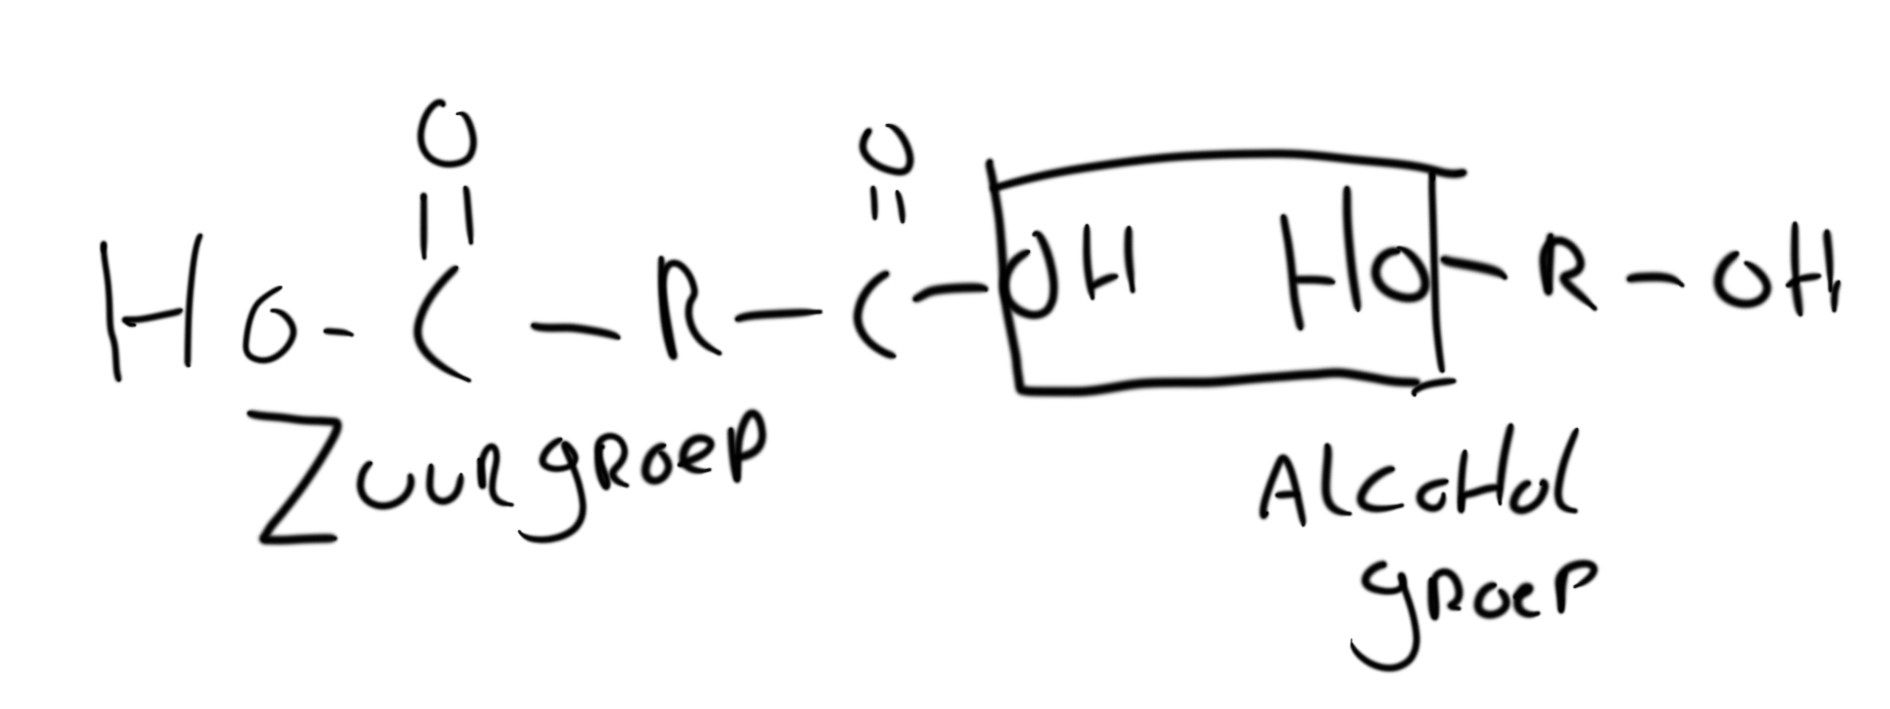 O O
HO-C-R-C-OH HO-R-OH
Zuurgroep
Alcohol
groep